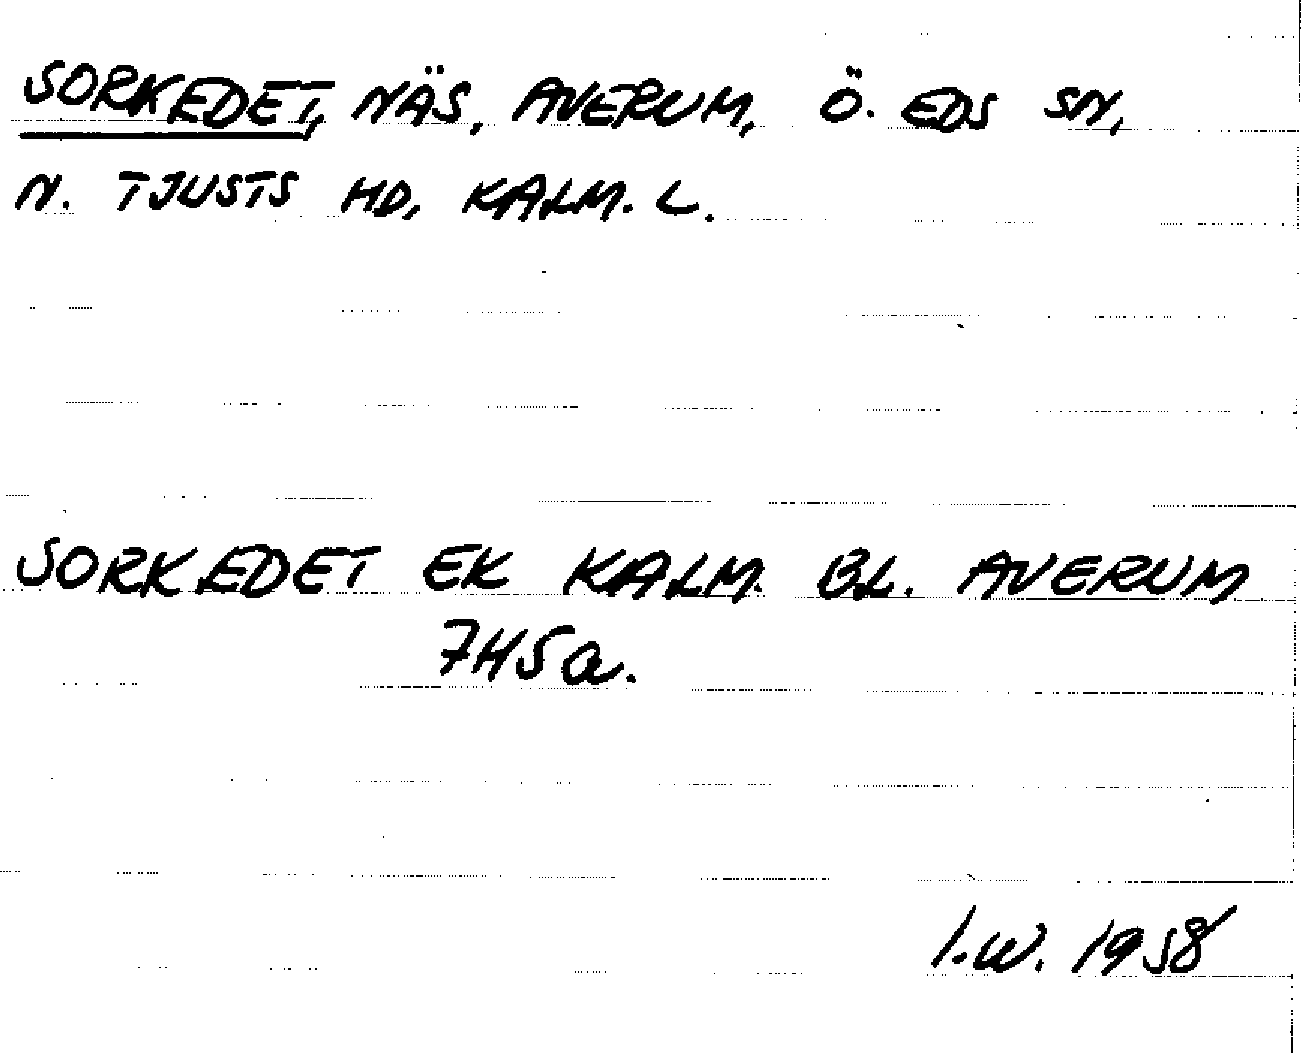 SORKEDET, NÄS, AVERUM, Ö. EDS SN,
N. TJUSTS HD, KALM. L.
SORKEDET EK KALM. BL. AVERUM
7H5a.
I.W. 1958